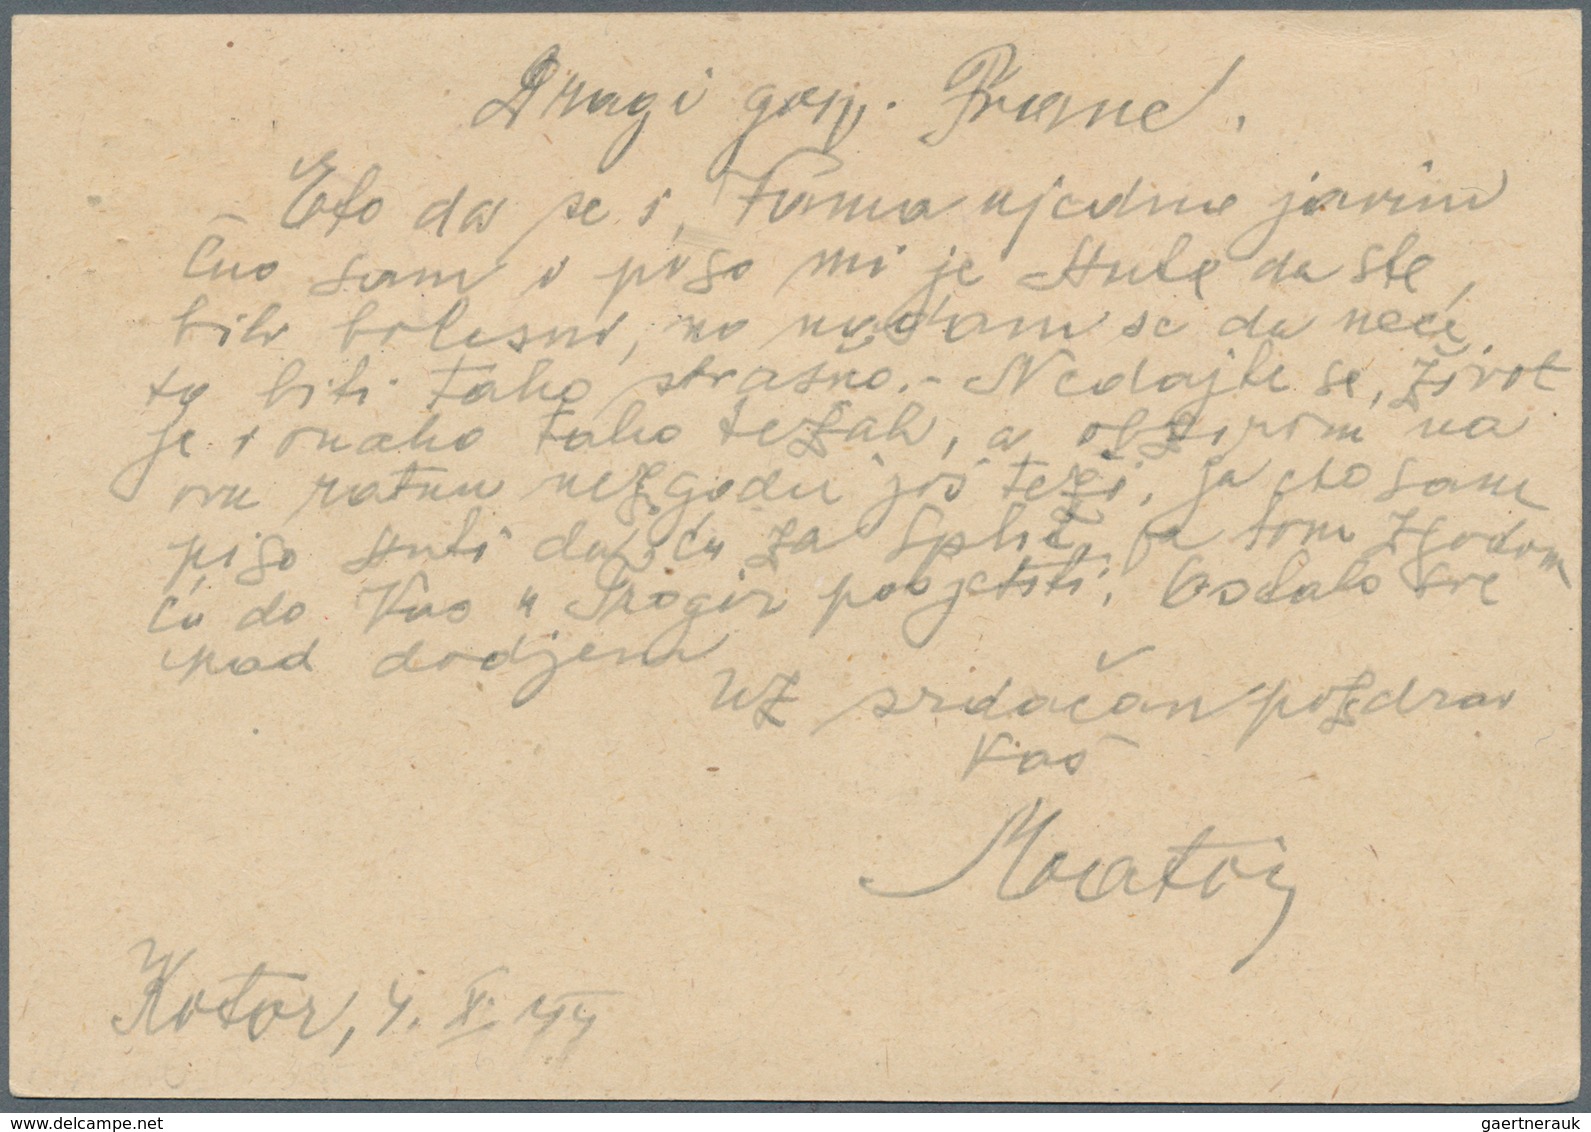 Dragi gosp. Frane!
Eto da se i Vama ujedno javim
Čuo sam i piso mi je da ste
bili bolesni, no nadam se da neće
to biti tako strašno. - Nedajte se, život
je i onako tako težak, a obzirom na
ovu ratnu nezgodu još teži. Ja eto sam
piso da ću za Split, pa tom zgodom
ću do Vas u Trogir posjetiti. Ostalo sve
kad dodjem
Uz srdačan pozdrav
Vaš
Kotor, 4. X. 44
gaertnerauk